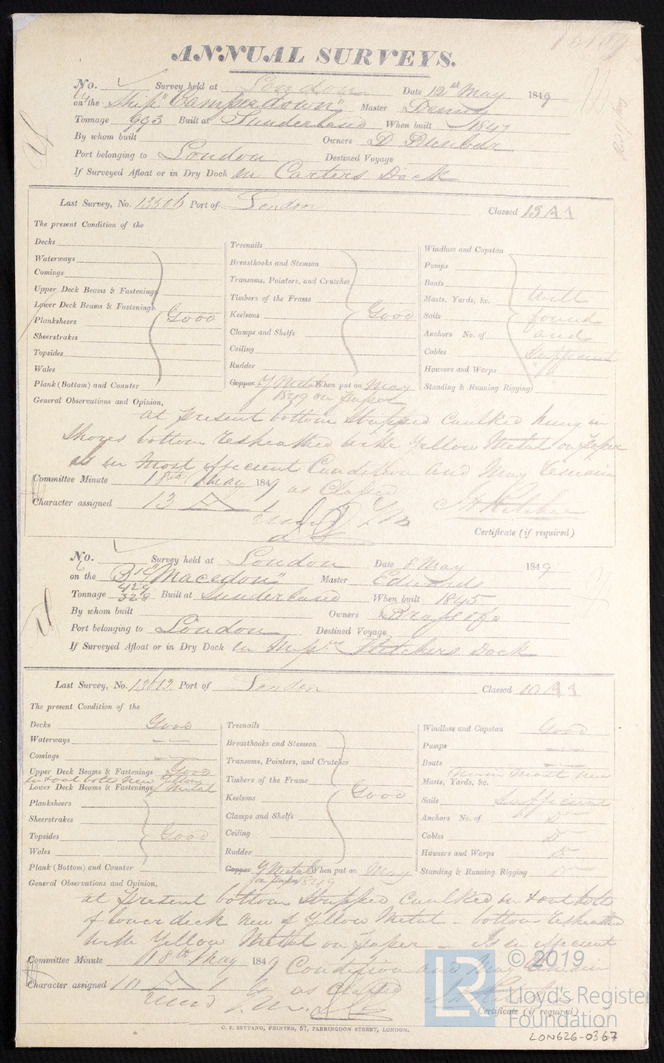 ANNUAL SURVEYS.
No. Survey held at London Date 12th May 1849
on the Ship "Camperdown" Master Denny
Tonnage 993 Built at Sunderland When built 1847
By whom built Owners D Dunbar
Port belonging to London Destined Voyage
If Surveyed Afloat or in Dry Dock in Carters Dock
Last Survey, No. 13516 Port of London Classed 13 A 1
The present Condition of the
Decks
Waterways
Comings
Upper Deck Beams & Fastenings
Lower Deck Beams & Fastenings Good
Planksheers
Sheerstrakes
Topsides
Wales
Plank (Bottom) and Counter
Treenails
Breasthooks and Stemson
Transoms, Pointers, and Crutches
Timbers of the Frame
Keelsons Good
Clamps and Shelfs
Ceiling
Rudder
Copper Y Metal When put on May
1849 on Paper
Windlass and Capstan
Pumps
Boats
Masts, Yards, &c. Well
Sails found
Anchors No. of and
Cables Sufficient
Hawsers and Warps
Standing & Running Rigging
General Observations and Opinion,
at Present bottom Stripped Caulked hung in
Shores bottom Resheathed with Yellow Metal on Paper
is in most efficient Condition and May remain
as Classed
Committee Minute 18th May 1849
Character assigned 13 A 1
Certificate (if required)
No. Survey held at London Date 8 May 1849
on the "Macedon" Master Edwards
Tonnage 429 329 Built at Sunderland When built 1845
By whom built Owners
Port belonging to London Destined Voyage
If Surveyed Afloat or in Dry Dock in Messrs Fletchers Dock
Last Survey, No. 13613 Port of London Classed 10 A 1
The present Condition of the
Decks Good
Waterways
Comings
Upper Deck Beams & Fastenings Good
in & out bolts new Yellow
Lower Deck Beams & Fastenings Metal
Planksheers
Sheerstrakes
Topsides Good
Wales
Plank (Bottom) and Counter
Treenails
Breasthooks and Stemson
Transoms, Pointers, and Crutches
Timbers of the Frame
Keelsons Good
Clamps and Shelfs
Ceiling
Rudder
Copper Y Metal When put on May
on Paper 1849
Windlass and Capstan Good
Pumps
Boats
Masts, Yards, &c.
Sails Sufficient
Anchors No. of Do
Cables Do
Hawsers and Warps Do
Standing & Running Rigging Do
General Observations and Opinion,
at Present bottom Stripped Caulked in & out bolts
of lower deck new of Yellow Metal - bottom Resheathed
with Yellow Metal on Paper - Is in efficient
Condition and May remain
as Classed
Committee Minute 18th May 1849
Character assigned 10 A 1
Certificate (if required)
C. F. SEYFANG, PRINTER, 57, FARRINGDON STREET, LONDON.
© 2019
LR Lloyd's Register
Foundation
LON626-0367